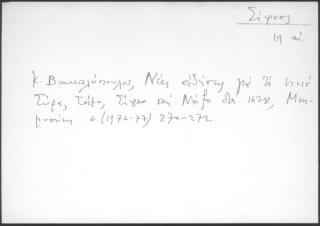 Σίφνος
19 αἰ.
Κ. Βακαλόπουλος, Νέες εἰδήσεις γιὰ τὰ νησιά
Σύρο, Τῆνο, Σίφνο καὶ Νάξο στὰ 1828, Μνη-
μοσύνη 6 (1976-77) 270-272.